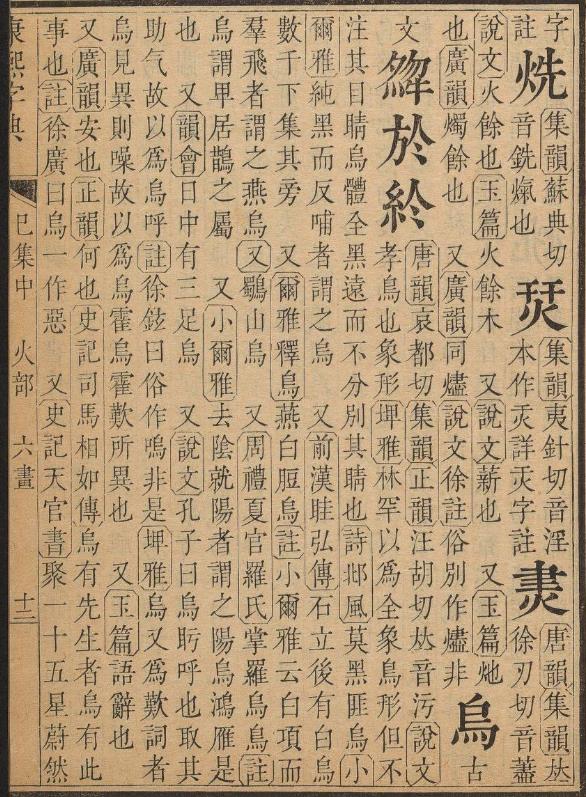 字 集韻蘇典切 集韻夷針切音淫 㶳 唐韻集韻𠀤
註 音銑㷟也 本作 詳 字註 徐刃切音藎
說文火餘也玉篇火餘木 又說文薪也 又玉篇灺 烏 古
也廣韻燭餘也 又廣韻同燼說文徐註俗別作燼非
文 於 唐韻哀都切集韻正韻汪胡切𠀤音污說文
孝鳥也象形埤雅林罕以爲全象鳥形但不
注其目睛烏體全黑遠而不分別其睛也詩邶風莫黑匪烏小
爾雅純黑而反哺者謂之烏 又前漢眭弘傳石立後有白烏
數千下集其旁 又爾雅釋鳥燕白脰烏註小爾雅云白項而
羣飛者謂之燕烏 又鸀山烏 又周禮夏官羅氏掌羅烏鳥註
烏謂𤰞居鵲之屬 又小爾雅去陰就陽者謂之陽烏鴻雁是
也 又韻會日中有三足烏 又說文孔子曰烏盱呼也取其
助气故以爲烏呼註徐鉉曰俗作嗚非是埤雅烏又爲歎詞者
烏見異則噪故以爲烏霍烏霍歎所異也 又玉篇語辭也
又廣韻安也正韻何也史記司馬相如傳烏有先生者烏有此
事也註徐廣曰烏一作惡 又史記天官書聚一十五星蔚然
康熙字典 巳集中 火部 六畫 十二